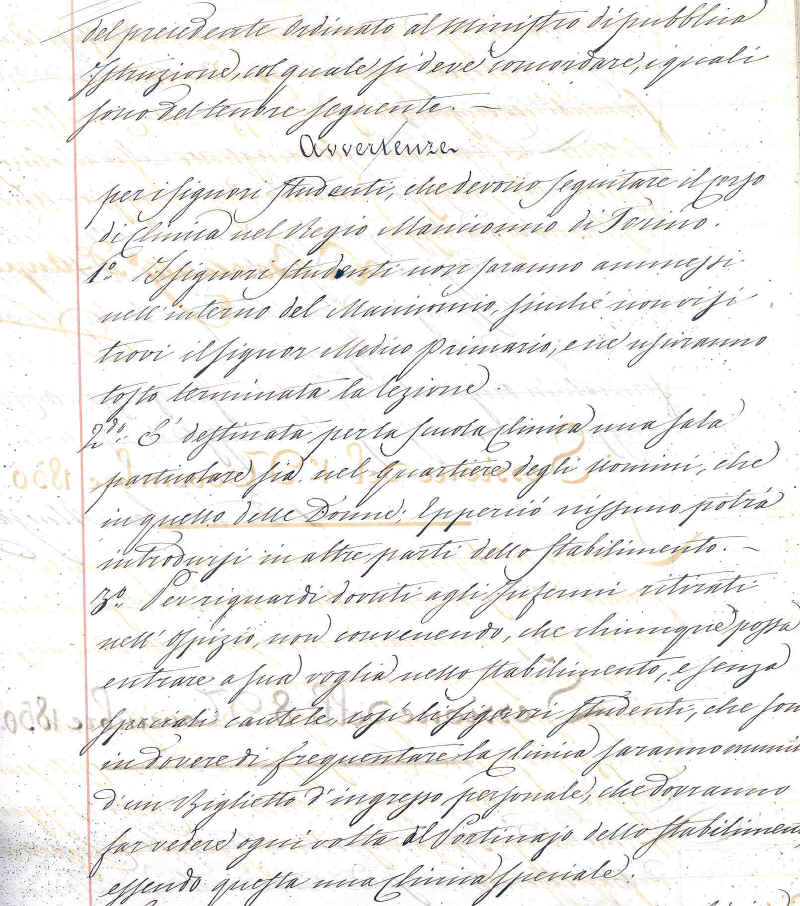 del precedente Ordinato al Ministro di pubblica
Istruzione, col quale si deve concordare, i quali
sono del tenore seguente. —
Avvertenze
per i signori studenti, che devono seguitare il corso
di Clinica nel Regio Manicomio di Torino.
1.o I signori studenti non saranno ammessi
nell'interno del Manicomio, sinché non vi si
trovi il signor Medico Primario, e ne usciranno
tosto terminata la lezione.
2.do È destinata per la scuola Clinica una sala
particolare sia nel Quartiere degli Uomini, che
in quello delle Donne; Epperciò nissuno potrà
introdursi in altre parti dello stabilimento. —
3.o Per riguardi dovuti agli Infermi ritirati
nell'Ospizio, non convenendo, che chiunque possa
entrare a sua voglia nello stabilimento, e senza
speciali cautele, così li signori studenti, che son
in dovere di frequentare la Clinica saranno muni
d'un Biglietto d'ingresso personale, che dovranno
far vedere ogni volta al Portinajo dello stabilimen
essendo questa una Clinica speciale.